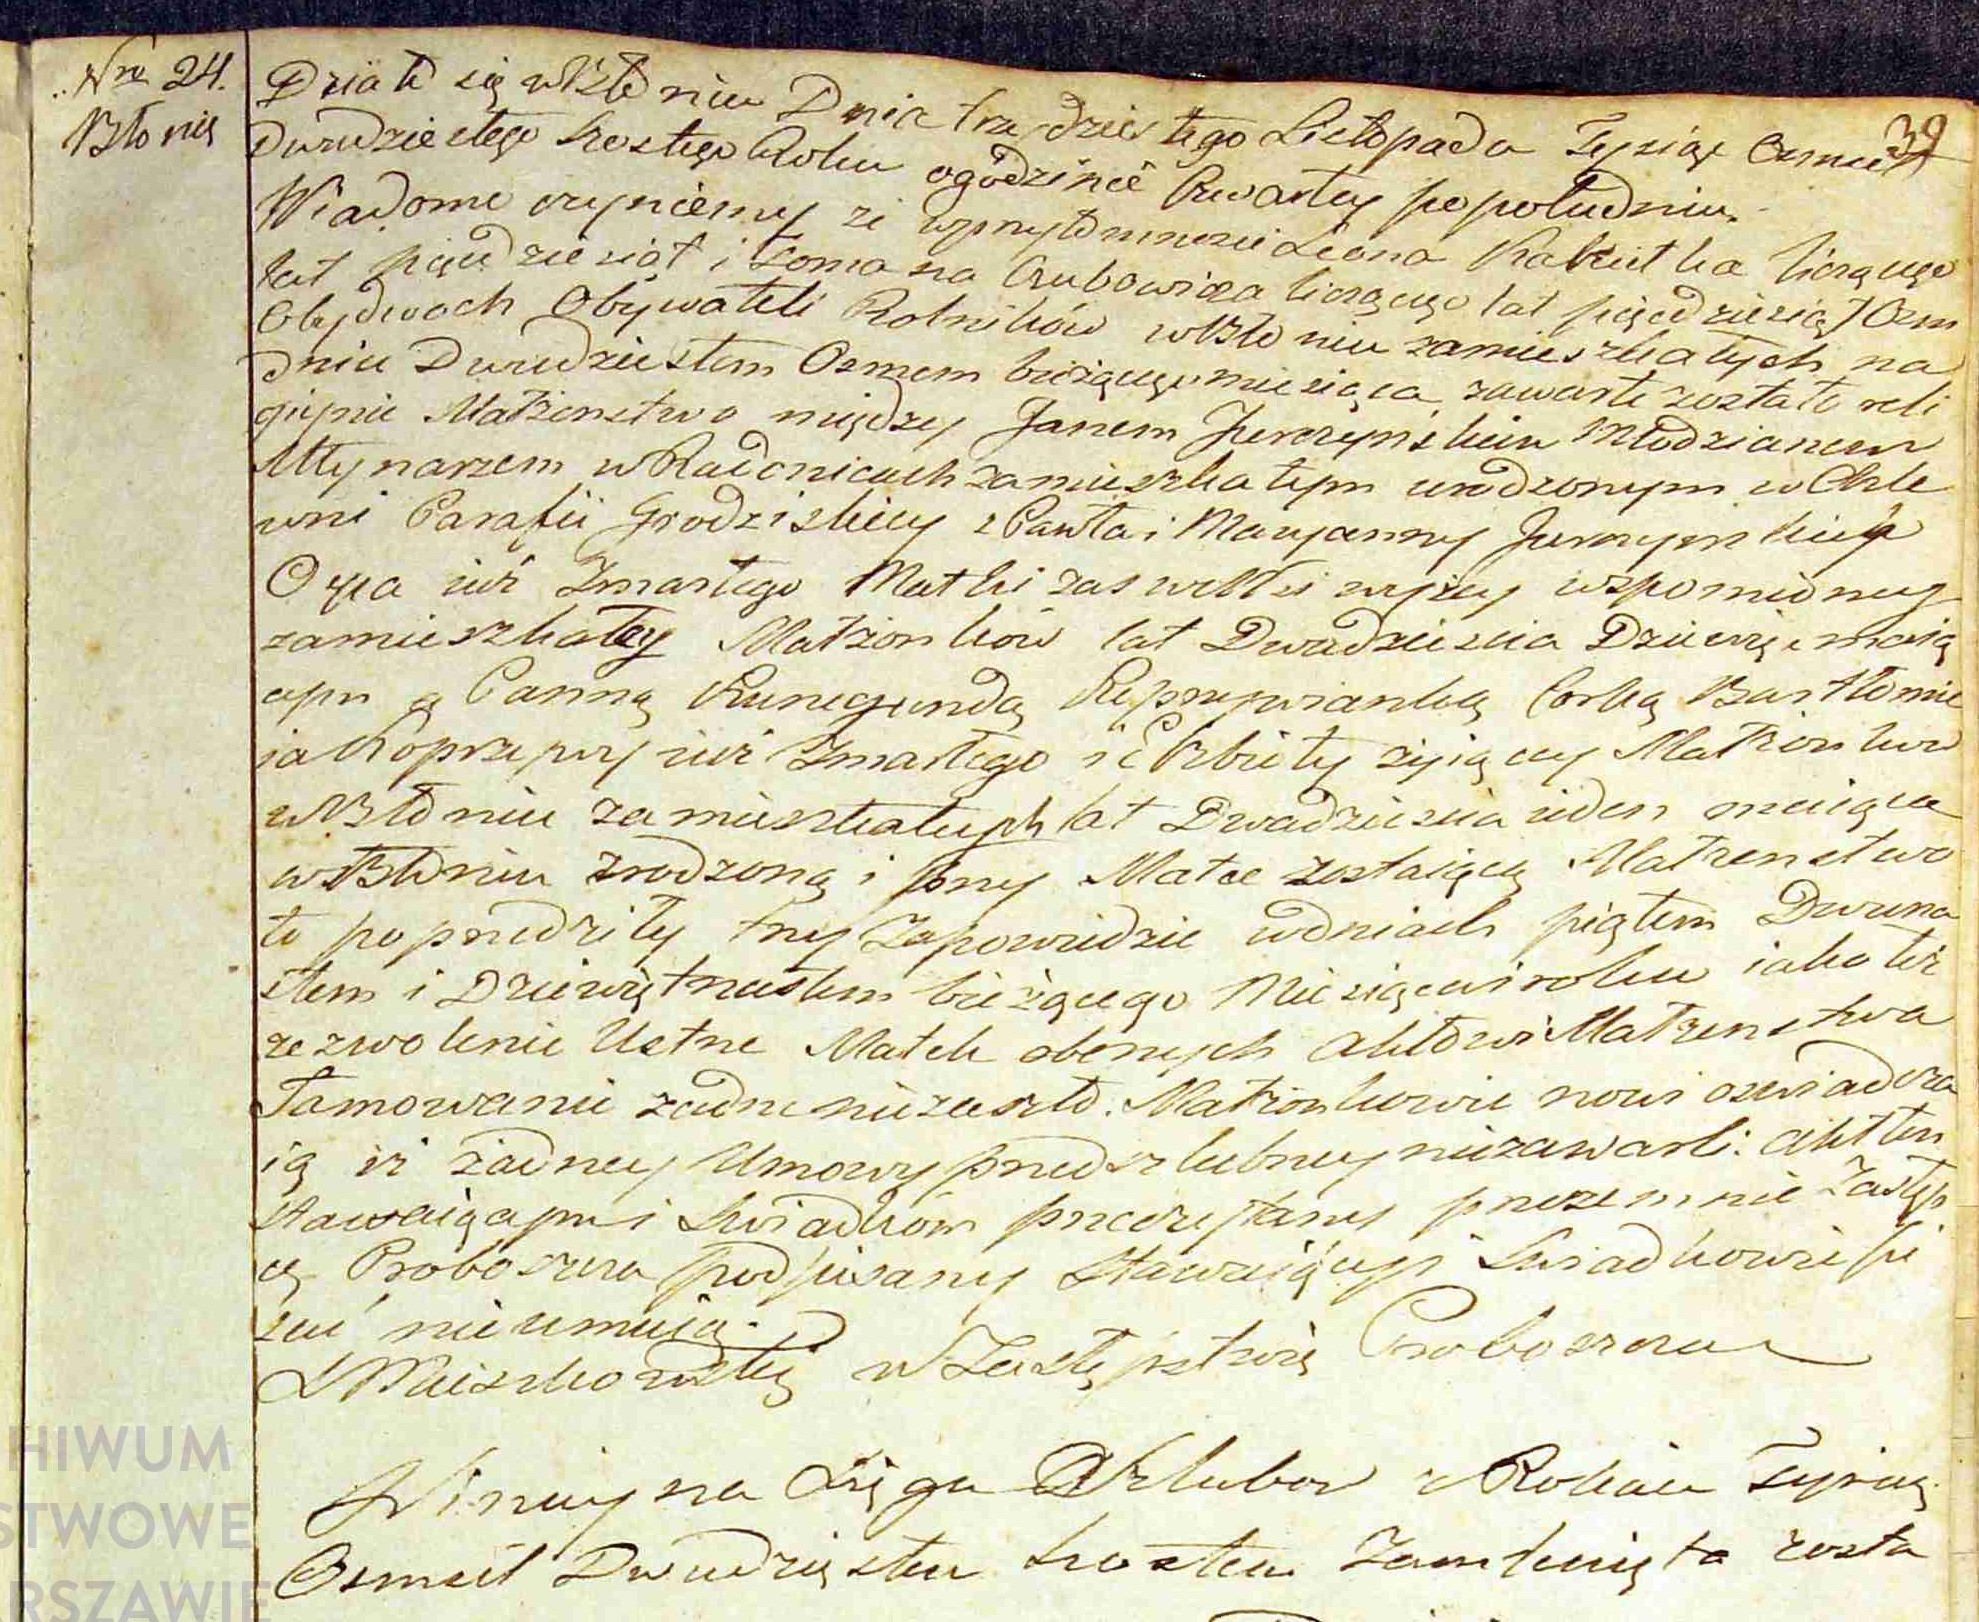 Nro 24.
Błonię
39
Działo się w Błoniu Dnia trzydziestego Listopada Tysiąc Osmset
Dwudziestego Szostego Roku ogodzinie Czwartey popołudniu.
Wiadomo czyniemy że wprzytomnosci Leona Kakietka liczącego
lat pięcdziesiąt i Romana Czubowicza liczącego lat pięcdziesiąt Osm
Obydwoch Obywateli Rolników w Błoniu zamieszkałych na
dniu Dwudziestem Osmem bieżącego miesiąca zawarte zostało reli
giynie Małżenstwo między Janem Jurczynskim Młodzianem
Młynarzem w Radonicach zamieszkałym urodzonym w Chle
wni Parafii Grodziskiey z Pawła i Maryanny Jurczynskich
Oyca iuż Zmarłego Matki zas w Wsi wyżey wspomioney
zamieszkałey Małżonków lat Dwadziescia Dziewięc maią
cym a Panną Kunegundą Koprzywianką Corką Bartłomie
ia Koprzywy iuż Zmarłego i Elżbiety żyiącey Małżonków
w Błoniu zamieszkałych lat Dwadziescia ieden maiąca
w Błoniu zrodzoną i przy Matce zostaiącą Małżenstwo
to poprzedziły trzy Zapowiedzie wdniach piątem Dwuna
stem i Dziewiętnastem bieżącego Miesiąca i roku iako też
zezwolenie Ustne Matek obecnych Aktowi Małżenstwa
Tamowanie żadne niezaszło. Małżonkowie nowi oswiadcza
ią iż żadney Umowy przedszlubney niezawarli. Akt ten
Stawaiącym i Swiadkom przeczytany przezemnie Zastęp
cę Proboszcza podpisany Stawaiący i Swiadkowie pi
sać nieumieią.
w Zastępstwie Proboszcza
Ninieyszа Xięga Szlubow z Rokiem Tysiąc
Osmset Dwudziestem Szostem Zamknięta zosta
HIWUM
STWOWE
RSZAWIE